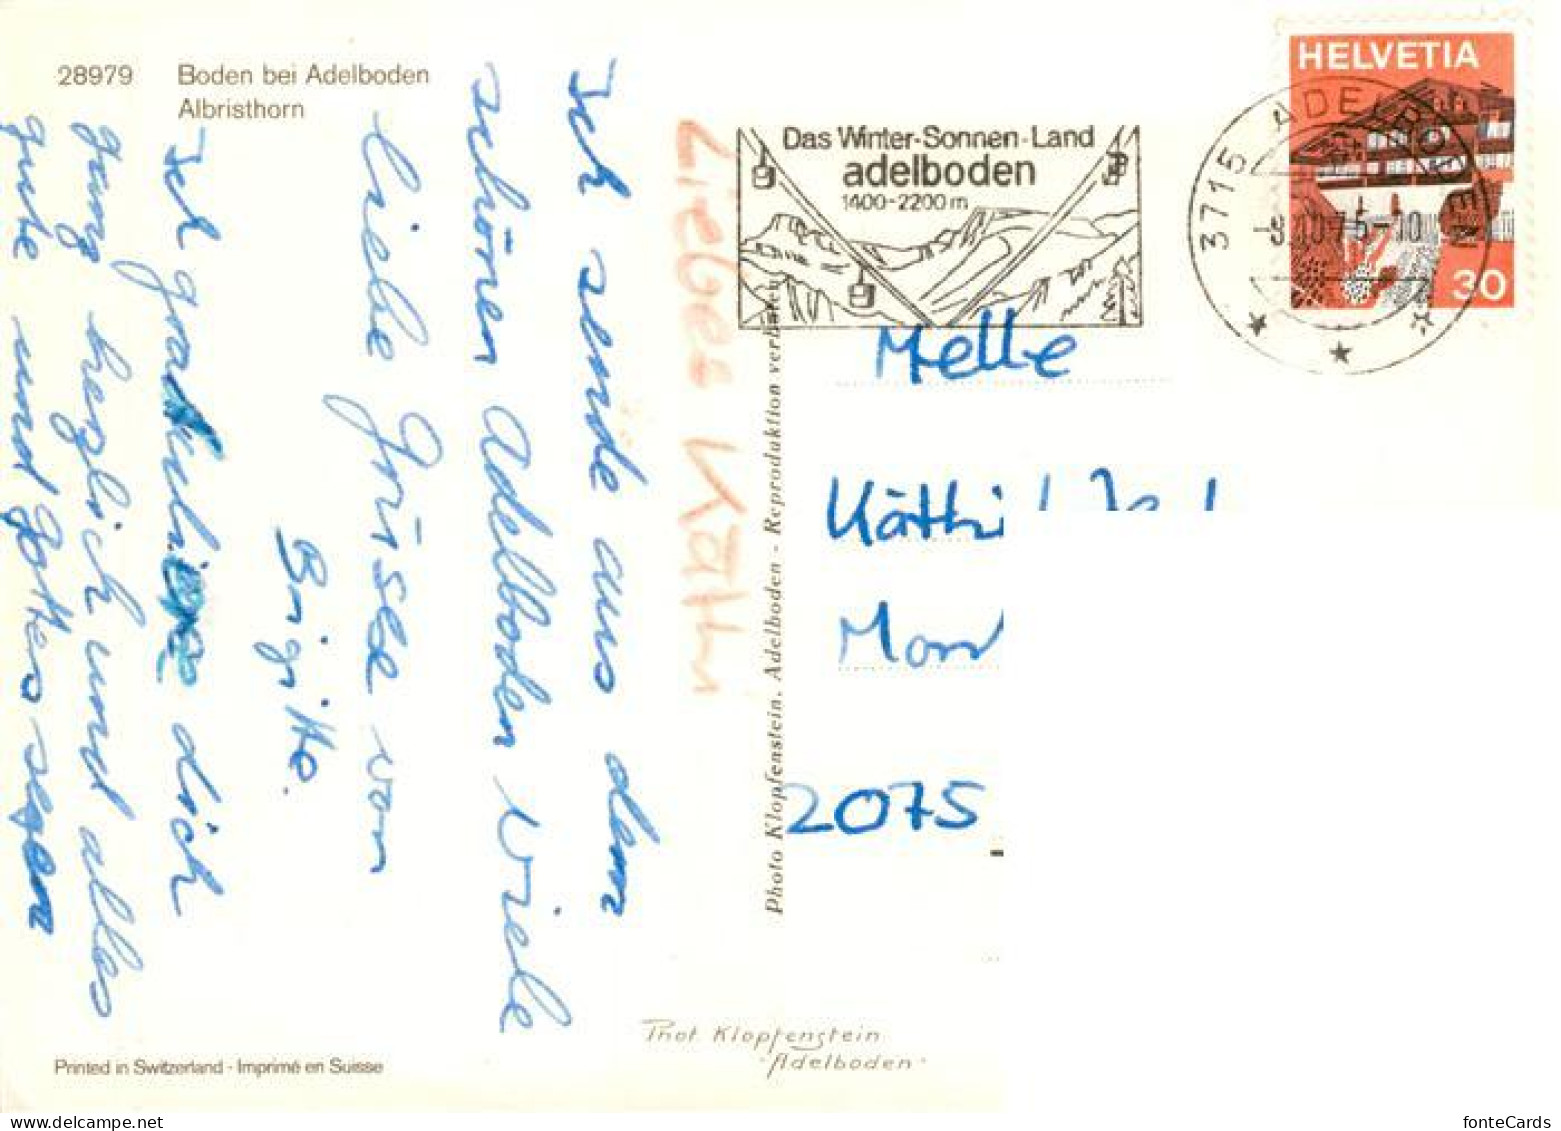 28979 Boden bei Adelboden
Albristhorn
HELVETIA
30
3715 ADELBODEN
-8.10.75-10
Das Winter-Sonnen-Land
adelboden
1400-2200m
Liebes Käthi
Ich sende aus dem
schönen Adelboden viele
liebe Grüsse von
Brigitte.
Ich gratuliere dich
ganz herzlich und alles
gute und Gottes segen
Melle
Käthi
2075
Photo Klopfenstein, Adelboden - Reproduktion verboten
Phot. Klopfenstein
Adelboden
Printed in Switzerland - Imprimé en Suisse
fonteCards